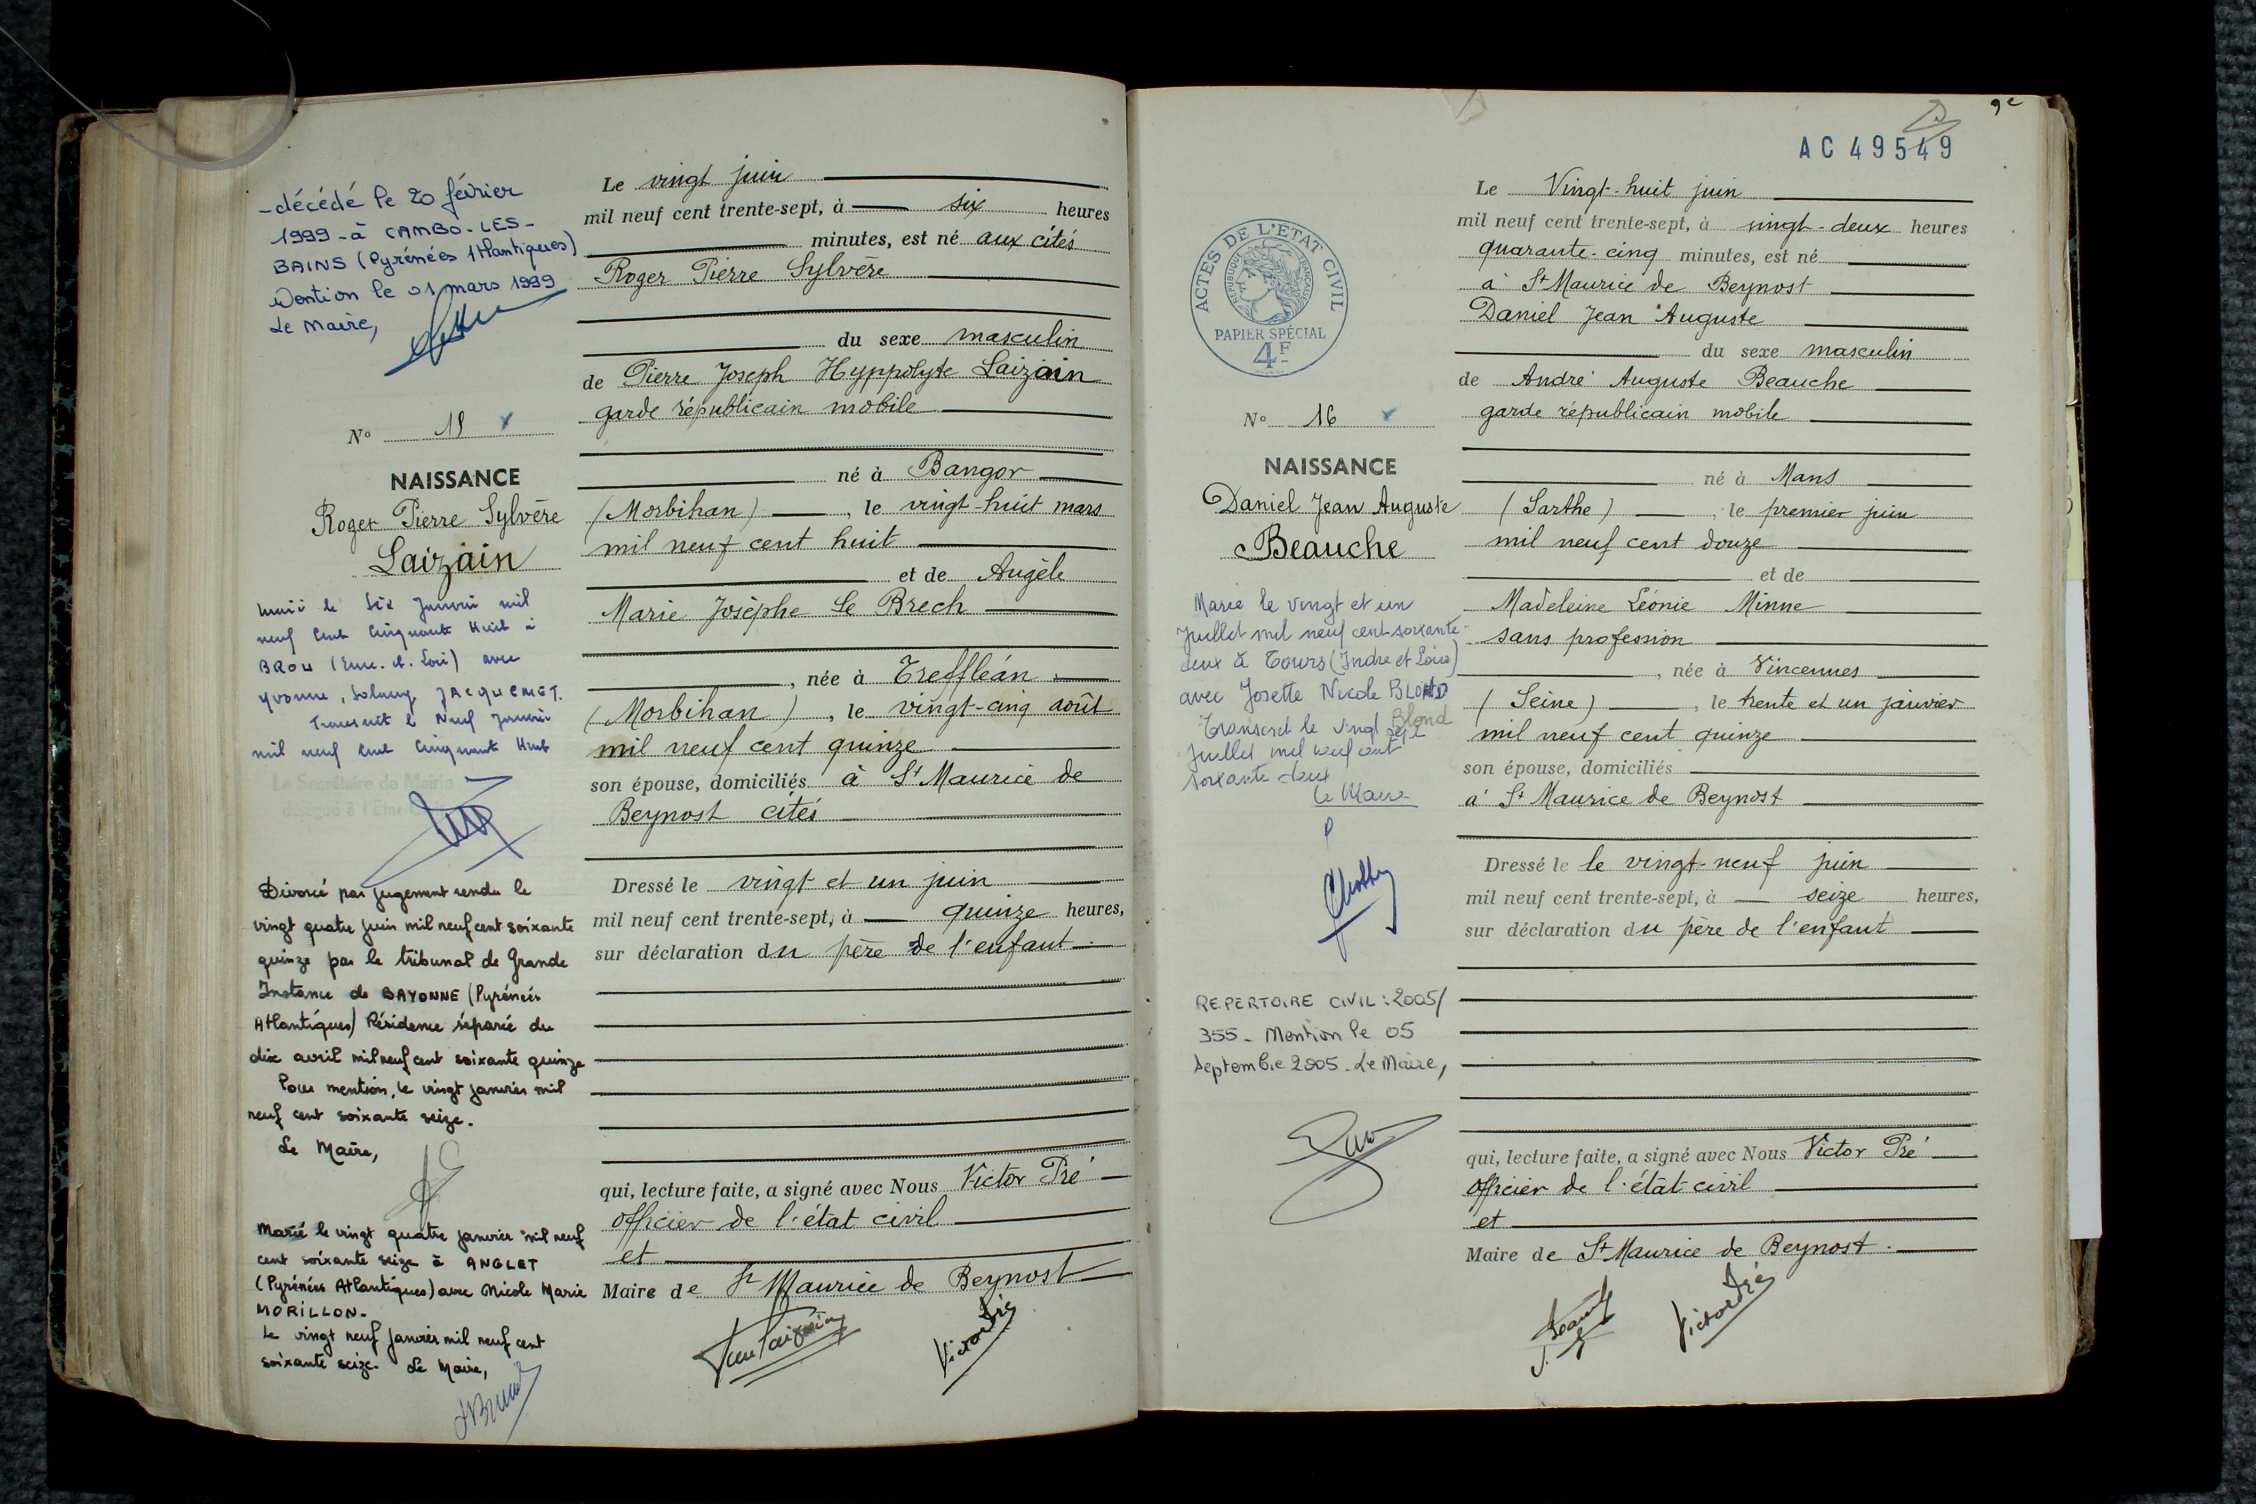 - décédé le 20 février
1999 - à CAMBO-LES-
BAINS (Pyrénées Atlantiques)
Mention le 01 mars 1999
Le Maire,
N° 15
NAISSANCE
Roger Pierre Sylvère
Laizain
Marié le six Janvier mil
neuf cent cinquante huit à
BROU (Eure-et-Loir) avec
Yvonne, Solange JACQUEMET.
Transcrit le Neuf Janvier
mil neuf cent cinquante huit
Le Secrétaire de Mairie
délégué à l'Etat
Divorcé par jugement rendu le
vingt quatre juin mil neuf cent soixante
quinze par le tribunal de Grande
Instance de BAYONNE (Pyrénées
Atlantiques) Résidence séparée du
dix avril mil neuf cent soixante quinze
Pour mention, le vingt janvier mil
neuf cent soixante seize.
Le Maire,
Marié le vingt quatre janvier mil neuf
cent soixante seize à ANGLET
(Pyrénées Atlantiques) avec Nicole Marie
MORILLON-
Le vingt neuf janvier mil neuf cent
soixante seize. Le Maire,
Le vingt juin
mil neuf cent trente-sept, à six heures
minutes, est né aux cités
Roger Pierre Sylvère
du sexe masculin
de Pierre Joseph Hyppolyte Laizain
garde républicain mobile
né à Bangor
(Morbihan), le vingt-huit mars
mil neuf cent huit
et de Angèle
Marie Josèphe Le Brech
, née à Treffléan
(Morbihan), le vingt-cinq août
mil neuf cent quinze
son épouse, domiciliés à St Maurice de
Beynost cités
Dressé le vingt et un juin
mil neuf cent trente-sept, à quinze heures,
sur déclaration du père de l'enfant
qui, lecture faite, a signé avec Nous Victor Pré
officier de l'état civil
et
Maire de St Maurice de Beynost
Victor Pré
9e
AC 49549
ACTES DE L'ETAT CIVIL
REPUBLIQUE FRANÇAISE
PAPIER SPÉCIAL
4F
N° 16
NAISSANCE
Daniel Jean Auguste
Beauche
Marié le vingt et un
Juillet mil neuf cent soixante
deux à Tours (Indre et Loire)
avec Josette Nicole BLOND
Blond
Transcrit le vingt sept
Juillet mil neuf cent
soixante deux
Le Maire
REPERTOIRE CIVIL : 2005/
355 - Mention le 05
septembre 2005 - Le Maire,
Le Vingt-huit juin
mil neuf cent trente-sept, à vingt-deux heures
quarante-cinq minutes, est né
à St Maurice de Beynost
Daniel Jean Auguste
du sexe masculin
de André Auguste Beauche
garde républicain mobile
né à Mans
(Sarthe), le premier juin
mil neuf cent douze
et de
Madeleine Léonie Minne
sans profession
, née à Vincennes
(Seine), le trente et un janvier
mil neuf cent quinze
son épouse, domiciliés
à St Maurice de Beynost
Dressé le le vingt-neuf juin
mil neuf cent trente-sept, à seize heures,
sur déclaration du père de l'enfant
qui, lecture faite, a signé avec Nous Victor Pré
officier de l'état civil
et
Maire de St Maurice de Beynost.
Victor Pré